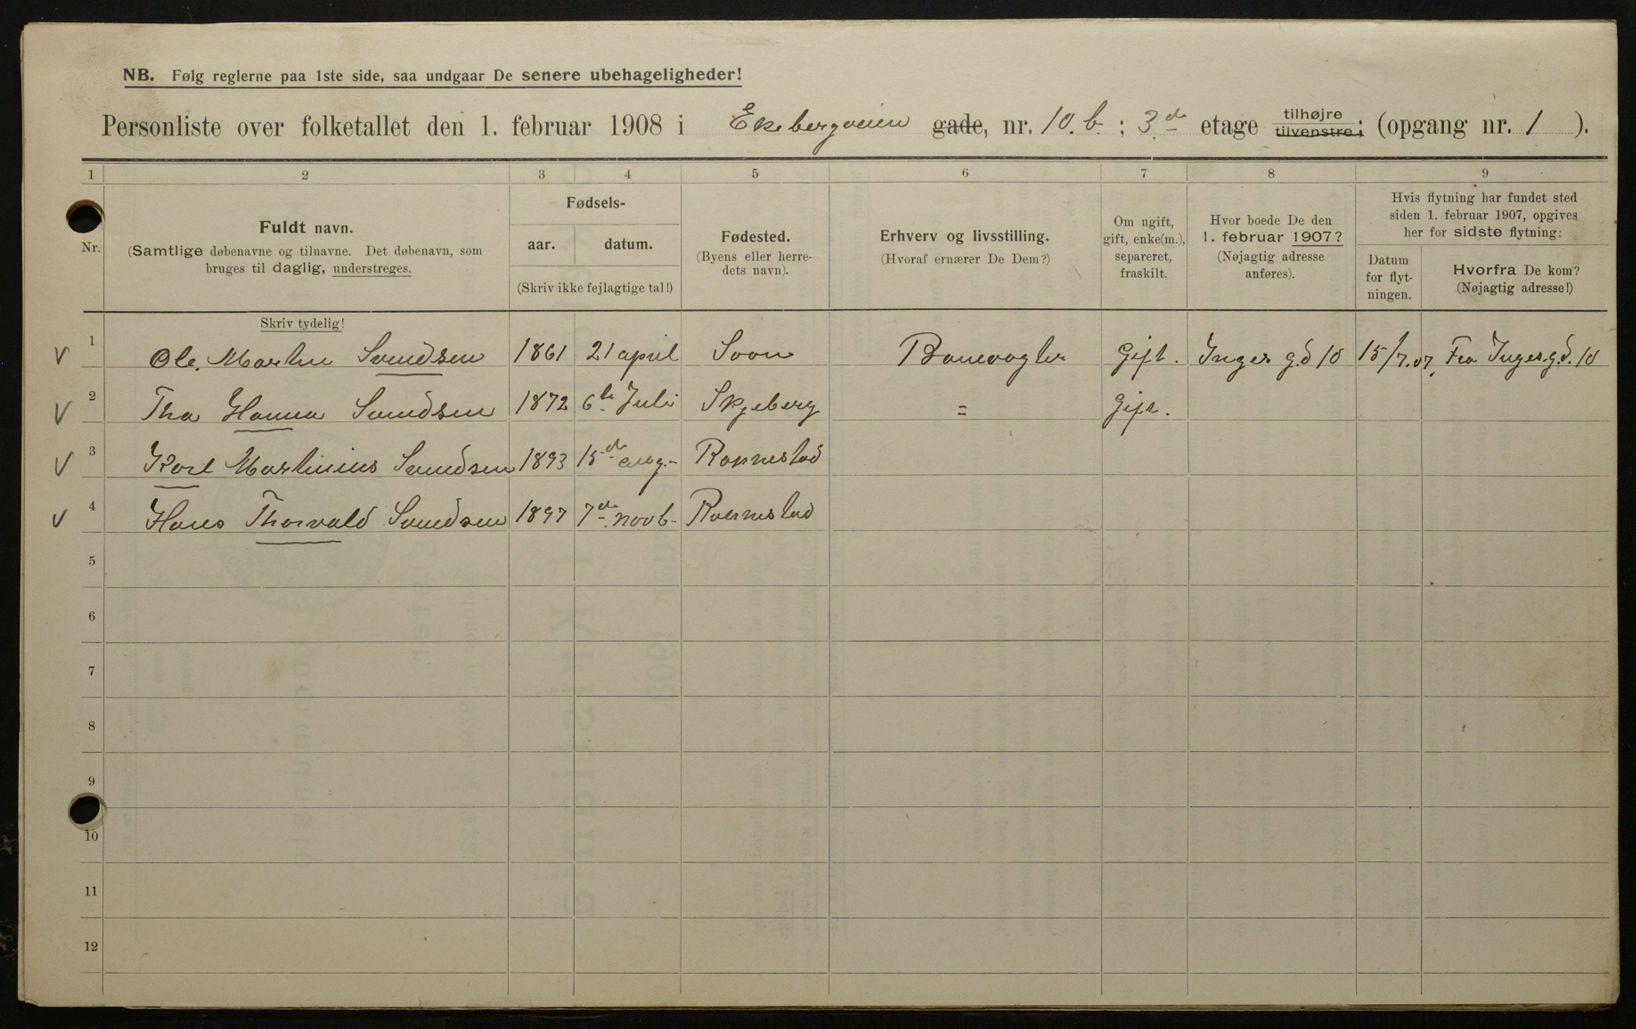 NB. Følg reglerne paa 1ste side, saa undgaar De senere ubehageligheder!
Personliste over folketallet den 1. februar 1908 i Ekebergveien gade, nr. 10.b ; 3.de etage tilhøjre tilvenstre ; (opgang nr. 1 ).
1 2 3 4 5 6 7 8 9
Nr.
Fuldt navn.
(Samtlige døbenavne og tilnavne. Det døbenavn, som
bruges til daglig, understreges.
Fødsels-
aar. datum.
(Skriv ikke fejlagtige tal!)
Fødested.
(Byens eller herre-
dets navn).
Erhverv og livsstilling.
(Hvoraf ernærer De Dem?)
Om ugift,
gift, enke(m.),
separeret,
fraskilt.
Hvor boede De den
1. februar 1907?
(Nøjagtig adresse
anføres).
Hvis flytning har fundet sted
siden 1. februar 1907, opgives
her for sidste flytning:
Datum
for flyt-
ningen.
Hvorfra De kom?
(Nøjagtig adresse!)
Skriv tydelig!
1 Ole. Martin Svendsen 1861 21 april Soon Banevogter Gift. Inges g.d 10 15/7.07. Fra Inges.g.d. 10
2 Tha Hanna Svendsen 1872 6te Juli Skjeberg = Gift.
3 Karl Martinius Svendsen 1893 15de aug.- Rakkestad
4 Hans Thorvald Svendsen 1897 7de novb- Rakkestad
5
6
7
8
9
10
11
12